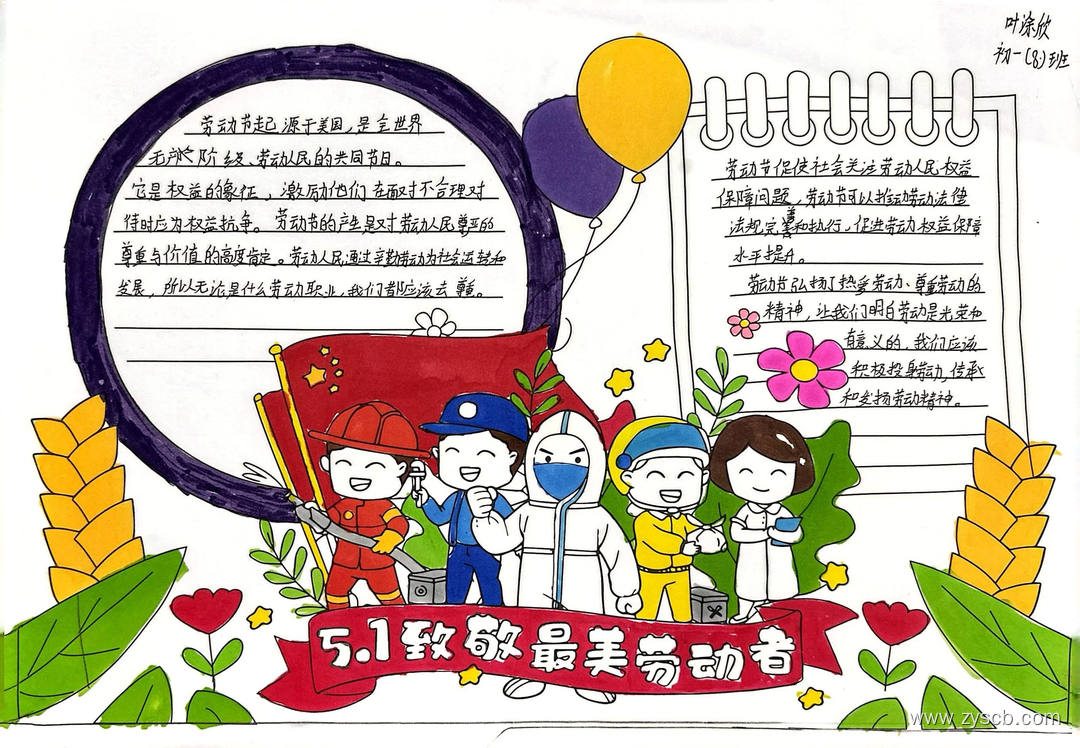 叶涤欣
初一(8)班
劳动节起源于美国,是全世界
无产阶级、劳动人民的共同节日。
它是权益的象征,激励他们在面对不合理对
待时应为权益抗争。劳动节的产生是对劳动人民尊严的
尊重与价值的高度肯定。劳动人民通过辛勤劳动为社会运转和
发展,所以无论是什么劳动职业,我们都应该去尊重。
劳动节促使社会关注劳动人民权益
保障问题,劳动节可以推动劳动法律
法规完善和执行,促进劳动权益保障
水平提升。
劳动节弘扬了热爱劳动、尊重劳动的
精神,让我们明白劳动是光荣和
有意义的,我们应该
积极投身劳动,传承
和发扬劳动精神。
5.1致敬最美劳动者
www.zyscb.com